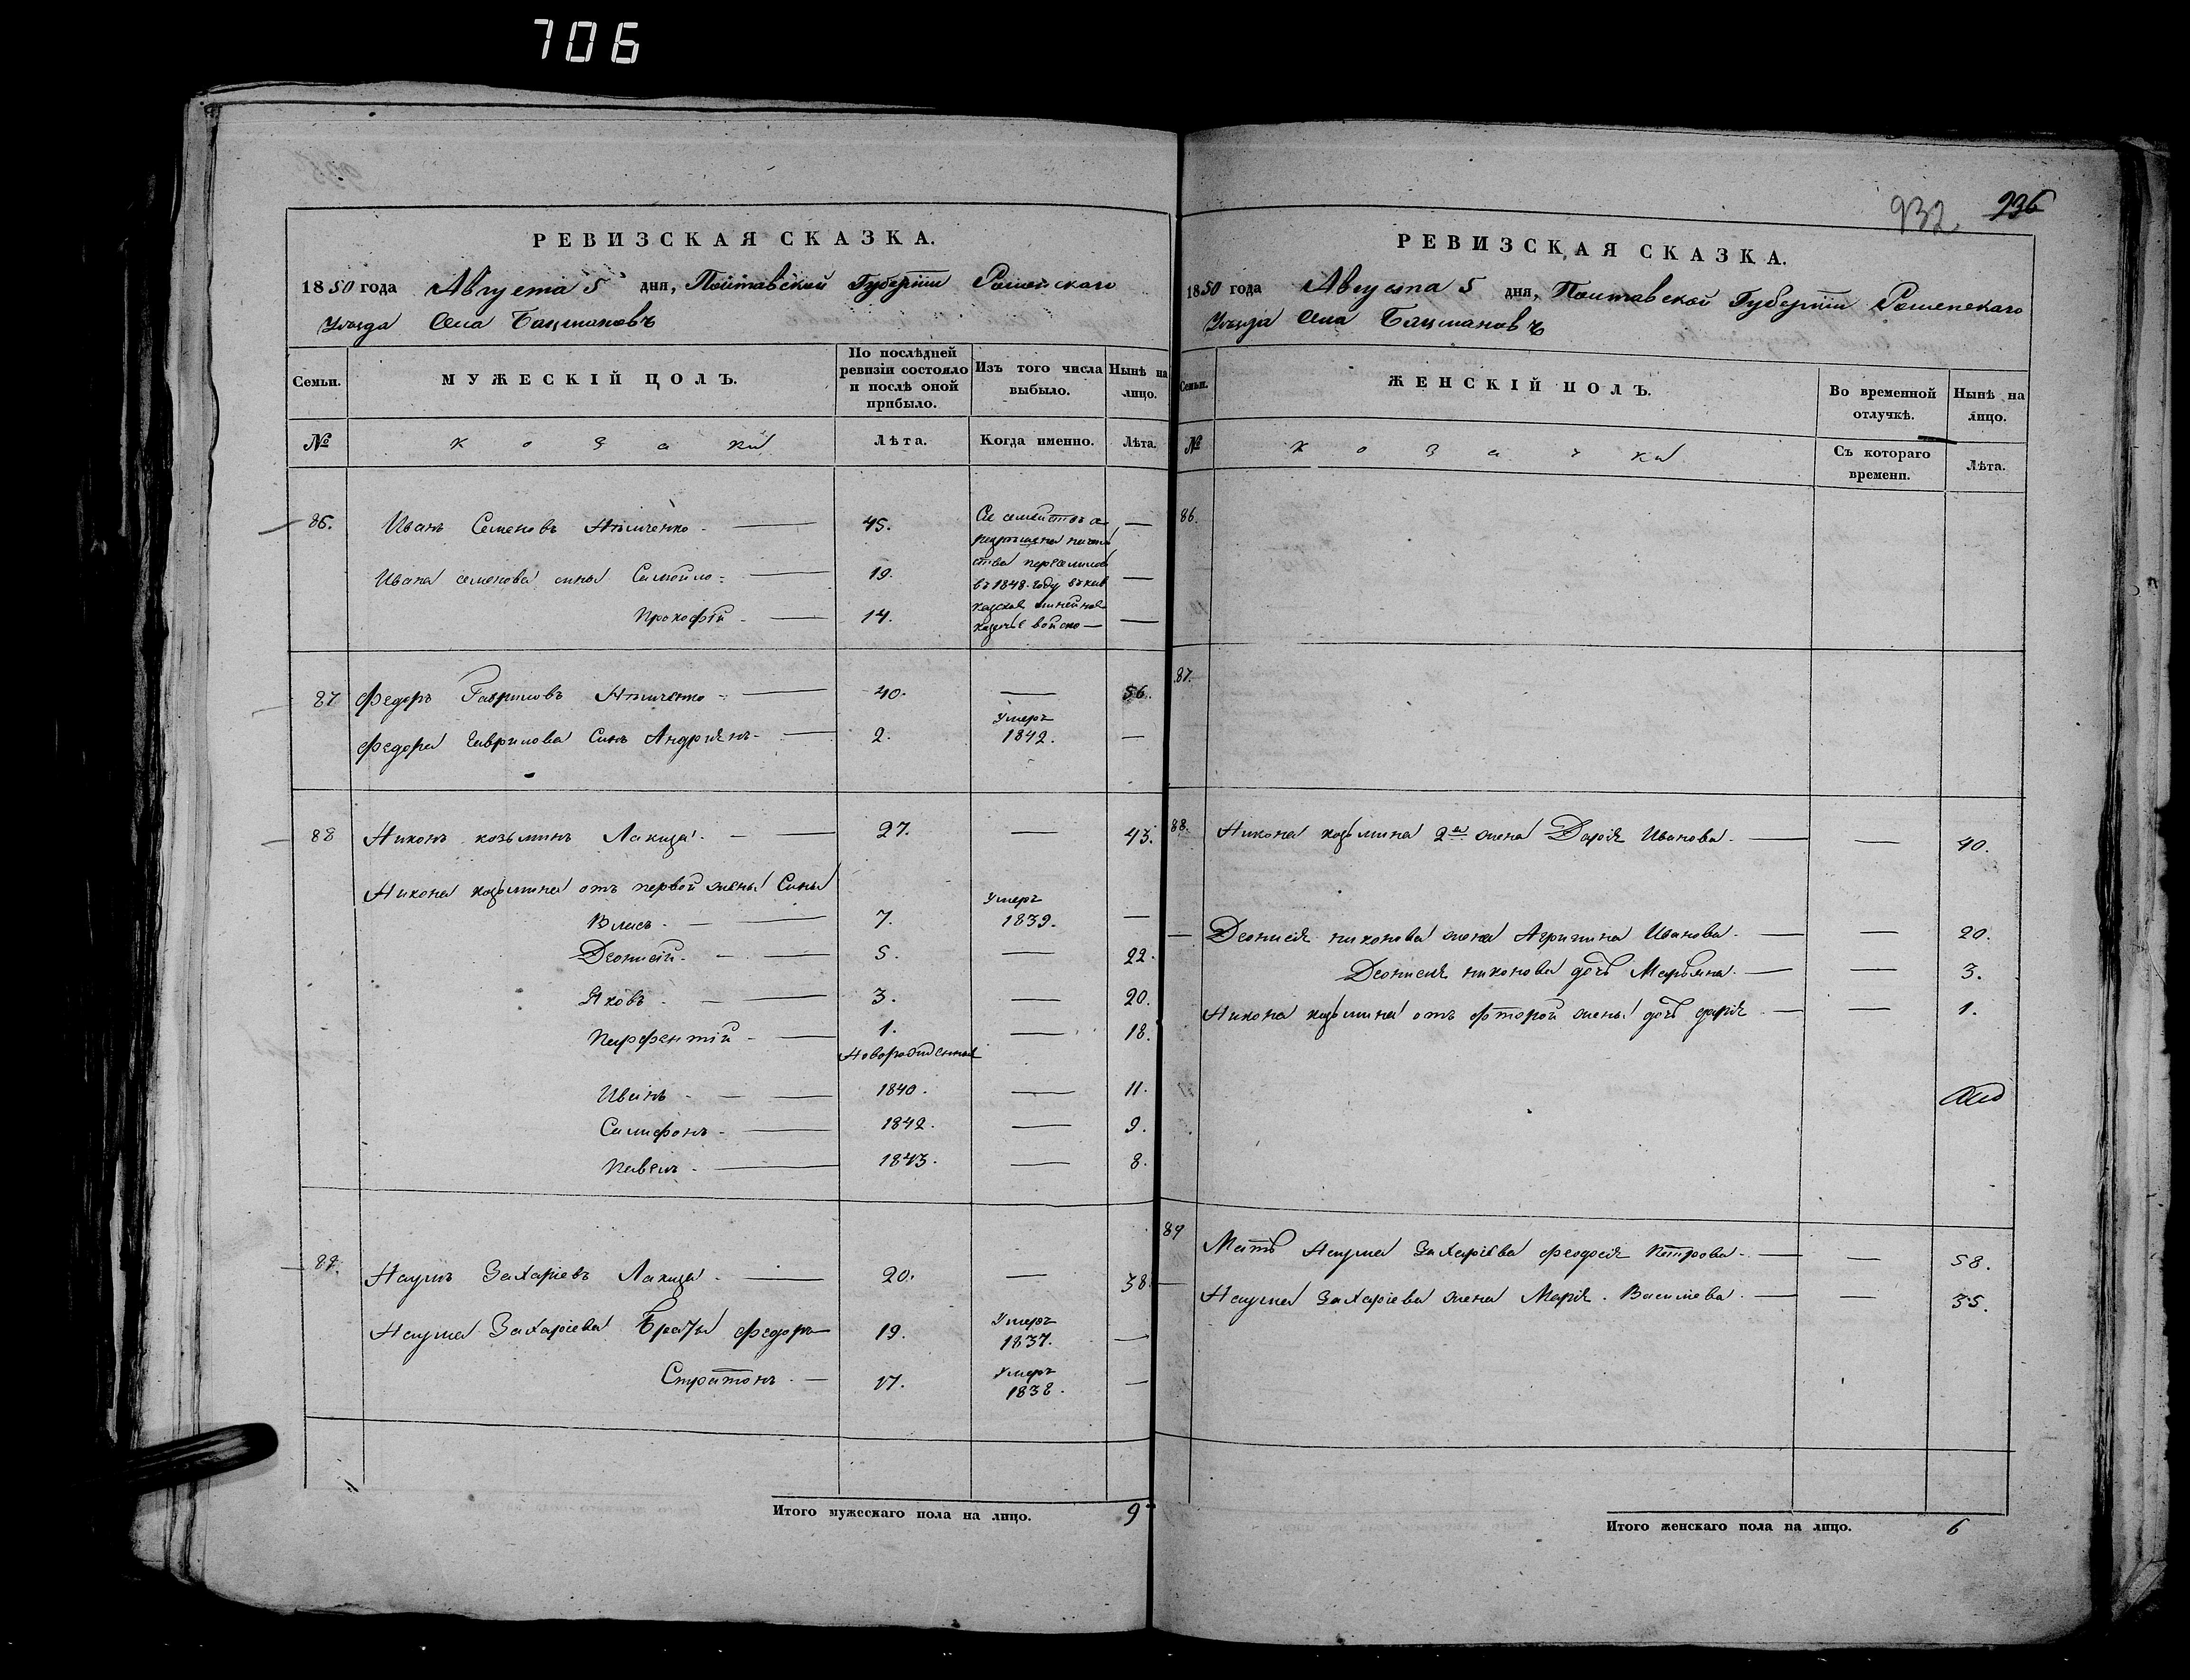 706
932 936
РЕВИЗСКАЯ СКАЗКА.
1850 года Августа 5 дня, Полтавской Губерніи Роменского
Уезда Села Бацмановъ
Семьи. МУЖЕСКІЙ ПОЛЪ. По послѣдней ревизіи состояло и послѣ оной прибыло. Изъ того числа выбыло. Нынѣ на лицо.
№ козаки Лѣта. Когда именно. Лѣта.
86. Иванъ Семеновъ 45. Сіе семейство —
Ивана семенова сины Самойло 19. —
Прокофій 14. —
въ 1848. году въ кавказское линейное казачье войско
87 Федоръ Гавриловъ 40. — 56.
Федора Гаврилова Синъ Андріянъ 2. Умеръ 1842. —
88 Никонъ козьминъ Лакиза 27. — 43.
Никона козьмина отъ первой жены Сины
Власъ 7. Умеръ 1839. —
Деонисій 5. — 22.
Яковъ 3. — 20.
Парфентій 1. — 18.
Новорожденныя
Иванъ 1840. — 11.
Самифонъ 1842. — 9.
Павелъ 1843. — 8.
89. Наумъ Захаріевъ Лакиза 20. — 38
Наума Захаріева Браты Федоръ 19. Умеръ 1837. —
Стратонъ 17. Умеръ 1838. —
Итого мужескаго пола на лицо. 9
РЕВИЗСКАЯ СКАЗКА.
1850 года Августа 5 дня, Полтавской Губерніи Роменского
Уезда Села Бацмановъ
Семьи. ЖЕНСКІЙ ПОЛЪ. Во временной отлучкѣ. Нынѣ на лицо.
№ козачки Съ котораго времени. Лѣта.
86.
87.
88. Никона козьмина 2я жена Дарія Иванова — 40.
Деонисія никонова жена Агрипина Иванова — 20.
Деонисія никонова дочь Марьяна — 3.
Никона козьмина отъ фторой жены дочь дарія — 1.
89 Мать Наума Захаріева феодосія Петрова — 58.
Наума Захаріева жена Марія Василіева — 35.
Итого женскаго пола на лицо. 6